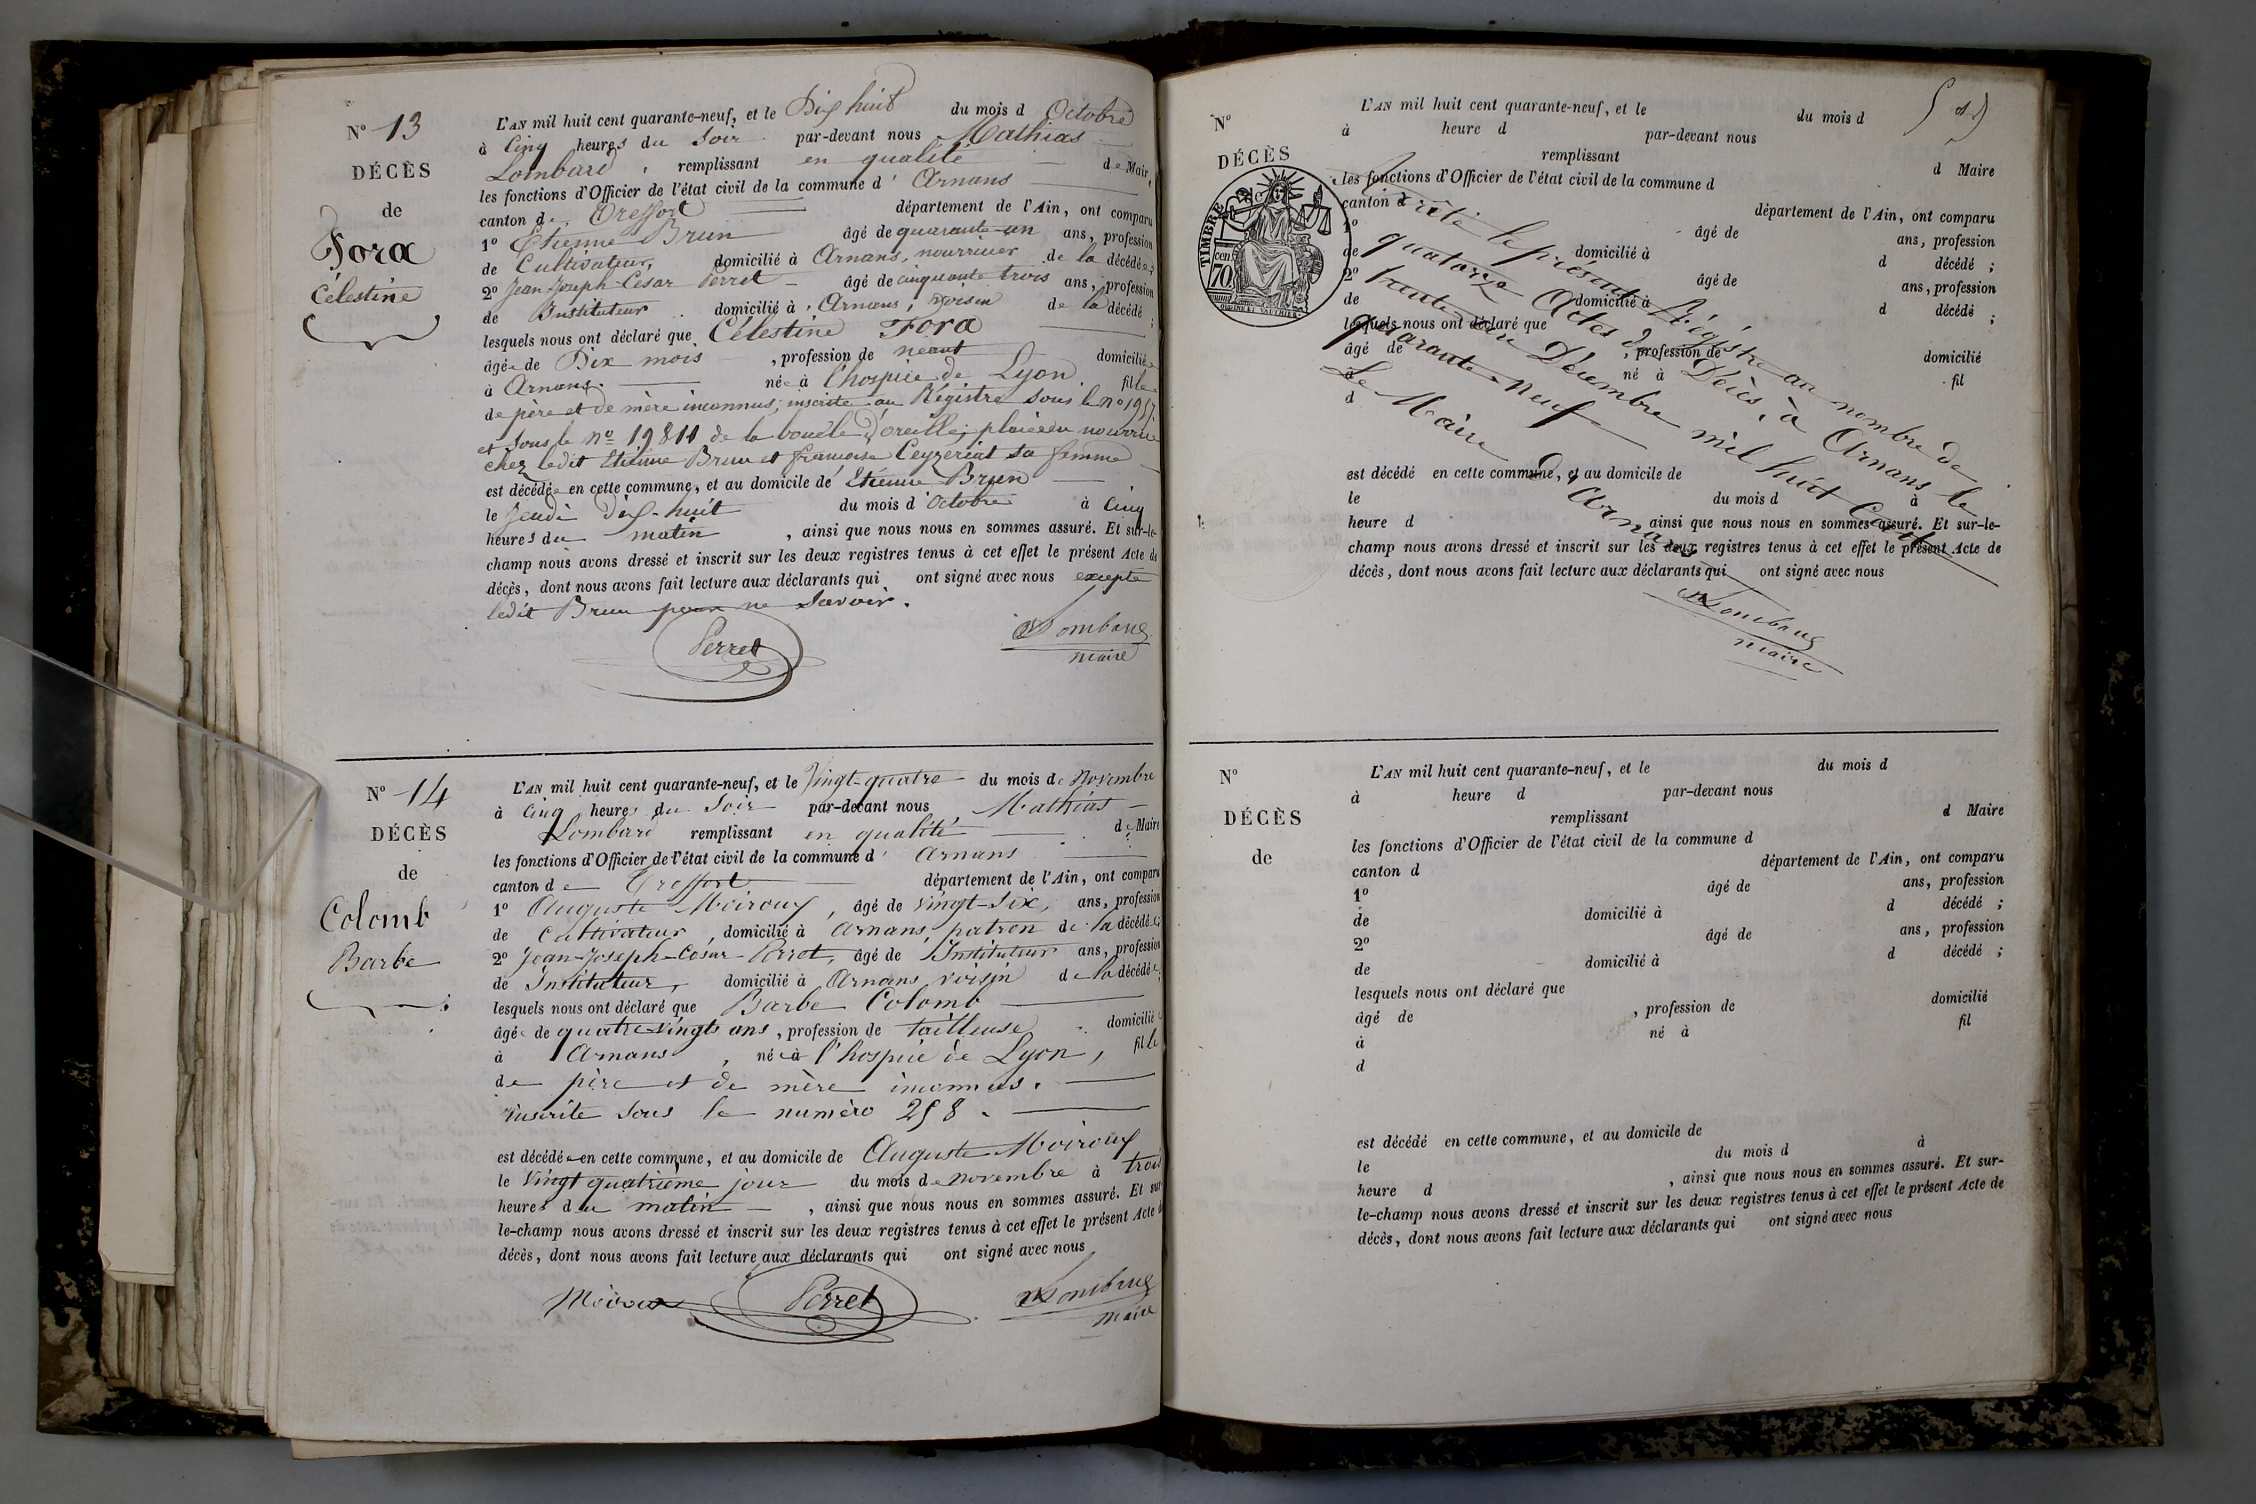 N° 13
DÉCÈS
de
Fora
Célestine
L'AN mil huit cent quarante-neuf, et le Dix huit du mois d Octobre
à Cinq heures du Soir par-devant nous Mathias
Lombard, remplissant en qualité de Maire,
les fonctions d'Officier de l'état civil de la commune d'Arnans
canton de Treffort département de l'Ain, ont comparu
1° Etienne Brun âgé de quarante-un ans, profession
de Cultivateur, domicilié à Arnans, nourricier de la décédée;
2° Jean-Joseph-César Perret âgé de cinquante trois ans, profession
de Instituteur domicilié à Arnans, voisin de la décédé;
lesquels nous ont déclaré que Célestine Fora
âgée de Dix mois, profession de néant domiciliée
à Arnans. née à l'hospice de Lyon. fille
de père et de mère inconnus, inscrite au Régistre sous le n°
et sous le n° 19811 de la boucle d'oreille, placée en nourrice
chez ledit Etienne Brun et françoise Ceyzeriat sa femme
est décédée en cette commune, et au domicile de Etienne Brun
le jeudi dix-huit du mois d'Octobre à Cinq
heures du matin, ainsi que nous nous en sommes assuré. Et sur-le-
champ nous avons dressé et inscrit sur les deux registres tenus à cet effet le présent Acte de
décès, dont nous avons fait lecture aux déclarants qui ont signé avec nous excepté
ledit Brun pour ne savoir.
Perret
Lombard
maire
N° 14
DÉCÈS
de
Colomb
Barbe
L'AN mil huit cent quarante-neuf, et le Vingt-quatre du mois de Novembre
à Cinq heures du Soir par-devant nous Mathias
Lombard remplissant en qualité de Maire
les fonctions d'Officier de l'état civil de la commune d'Arnans
canton de Treffort département de l'Ain, ont comparu
1° Auguste Moiroux, âgé de vingt-six, ans, profession
de Cultivateur, domicilié à Arnans, patron de la décédée;
2° Jean-Joseph-César-Perret, âgé de Instituteur ans, profession
de Instituteur, domicilié à Arnans voisin de la décédée;
lesquels nous ont déclaré que Barbe Colomb
âgée de quatre-vingts ans, profession de tailleuse domiciliée
à Arnans, née à l'hospice de Lyon, fille
de père et de mère inconnus.
inscrite sous le numéro 258.
est décédée en cette commune, et au domicile de Auguste Moiroux
le Vingt quatrième jour du mois de novembre à trois
heures du matin, ainsi que nous nous en sommes assuré. Et sur-
le-champ nous avons dressé et inscrit sur les deux registres tenus à cet effet le présent Acte de
décès, dont nous avons fait lecture aux déclarants qui ont signé avec nous
Moiroux
Perret
Lombard
maire
N°
DÉCÈS
TIMBRE
70 cen
L'AN mil huit cent quarante-neuf, et le du mois d
à heure d par-devant nous
remplissant d Maire
les fonctions d'Officier de l'état civil de la commune d
canton d département de l'Ain, ont comparu
1° âgé de ans, profession
de domicilié à d décédé ;
2° âgé de ans, profession
de domicilié à d décédé ;
lesquels nous ont déclaré que
âgé de , profession de domicilié
né à fil
d
est décédé en cette commune, et au domicile de
le du mois d à
heure d ainsi que nous nous en sommes assuré. Et sur-le-
champ nous avons dressé et inscrit sur les deux registres tenus à cet effet le présent Acte de
décès, dont nous avons fait lecture aux déclarants qui ont signé avec nous
Arrêté le présent Régistre au nombre de
quatorze Actes de Décès, à Arnans le
trente un Décembre mil huit cent
quarante-neuf
Le Maire d'Arnans
Lombard
maire
N°
DÉCÈS
de
L'AN mil huit cent quarante-neuf, et le du mois d
à heure d par-devant nous
remplissant d Maire
les fonctions d'Officier de l'état civil de la commune d
canton d département de l'Ain, ont comparu
1° âgé de ans, profession
de domicilié à d décédé ;
2° âgé de ans, profession
de domicilié à d décédé ;
lesquels nous ont déclaré que
âgé de , profession de domicilié
à né à fil
d
est décédé en cette commune, et au domicile de
le du mois d à
heure d , ainsi que nous nous en sommes assuré. Et sur-
le-champ nous avons dressé et inscrit sur les deux registres tenus à cet effet le présent Acte de
décès, dont nous avons fait lecture aux déclarants qui ont signé avec nous